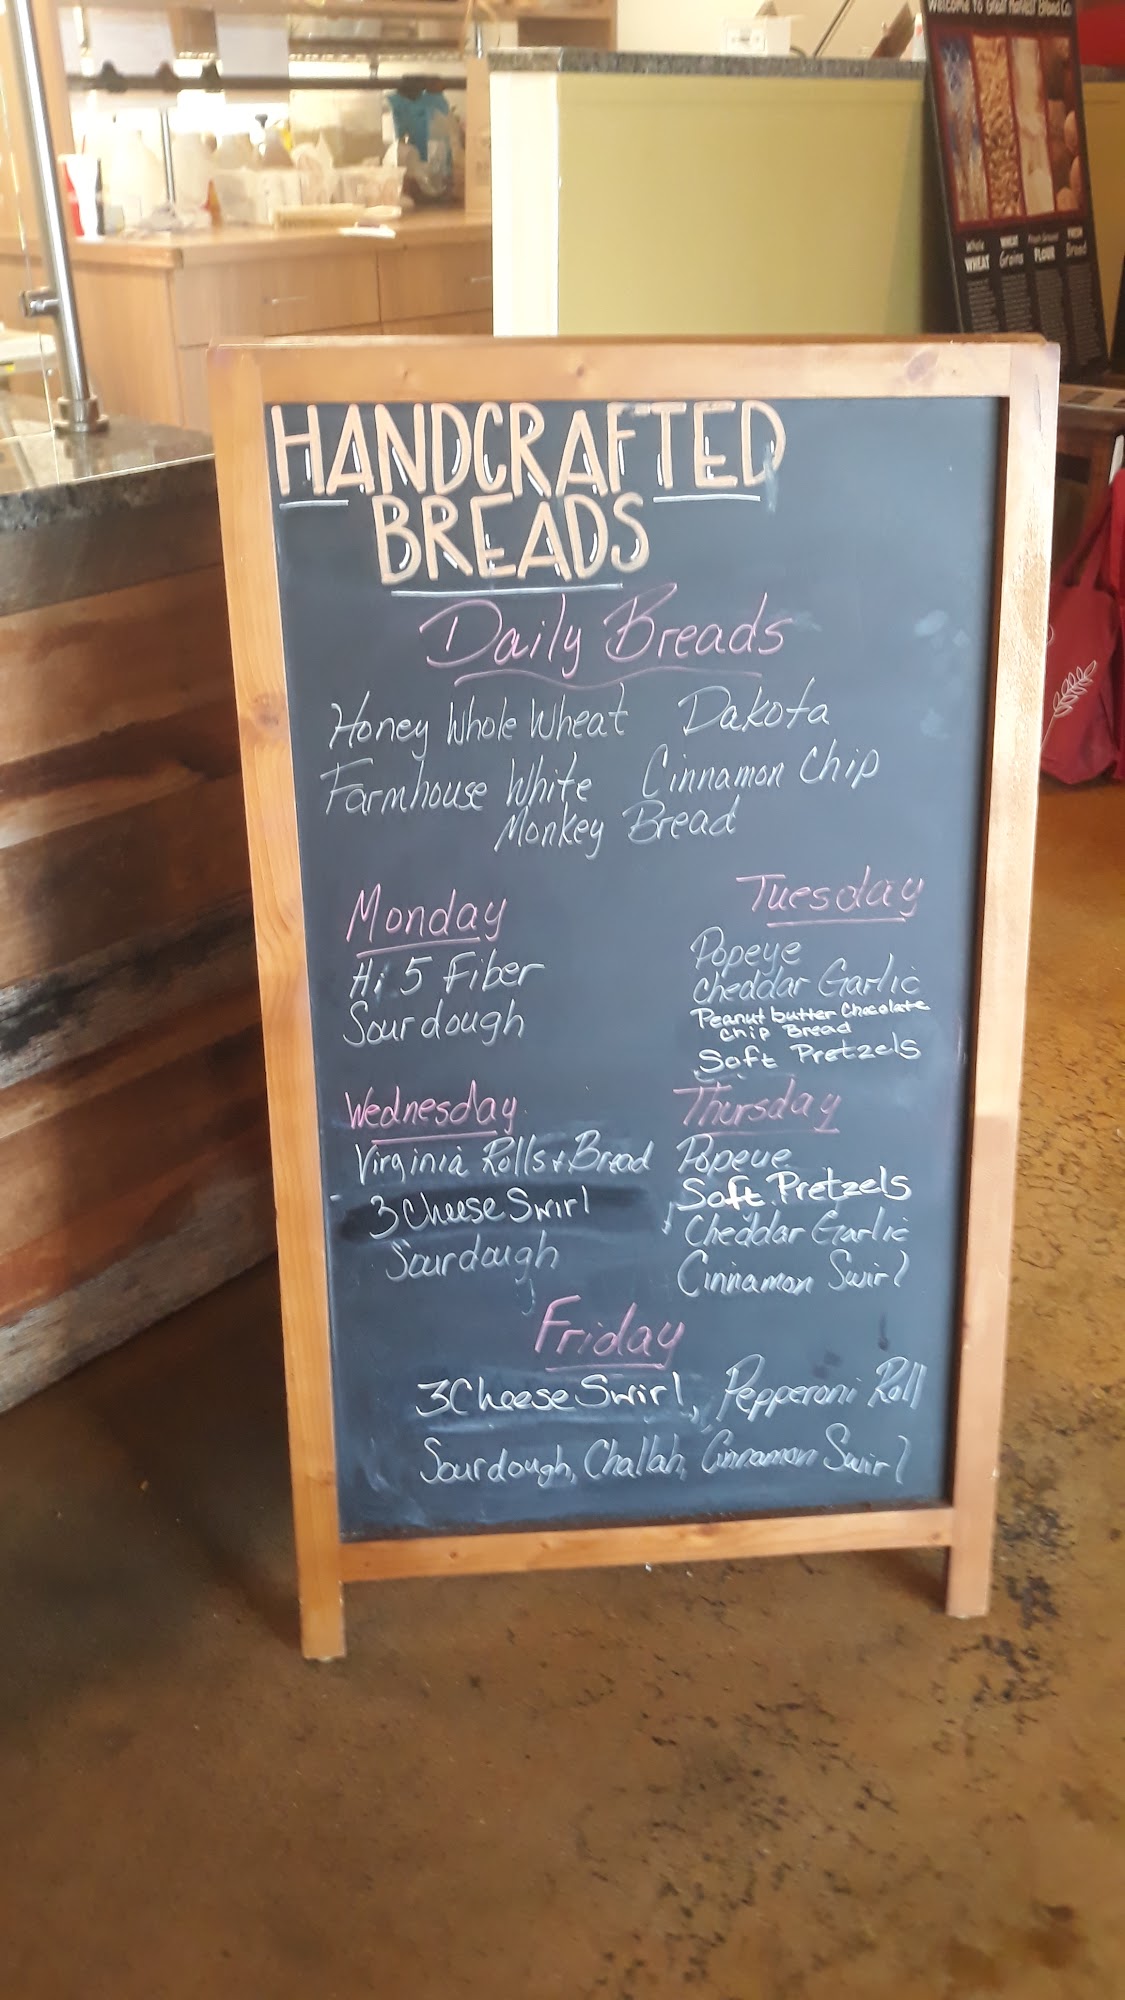 Welcome To Great Harvest Bread Co.
Whole WHEAT
WHEAT Grains
Fresh Ground FLOUR
FRESH Bread
HANDCRAFTED
BREADS
Daily Breads
Honey Whole Wheat Dakota
Farmhouse White Cinnamon Chip
Monkey Bread
Monday
Hi 5 Fiber
Sourdough
Tuesday
Popeye
Cheddar Garlic
Peanut butter Chocolate
Chip Bread
Soft Pretzels
Wednesday
Virginia Rolls + Bread
3 Cheese Swirl
Sourdough
Thursday
Popeye
Soft Pretzels
Cheddar Garlic
Cinnamon Swirl
Friday
3 Cheese Swirl, Pepperoni Roll
Sourdough, Challah, Cinnamon Swirl